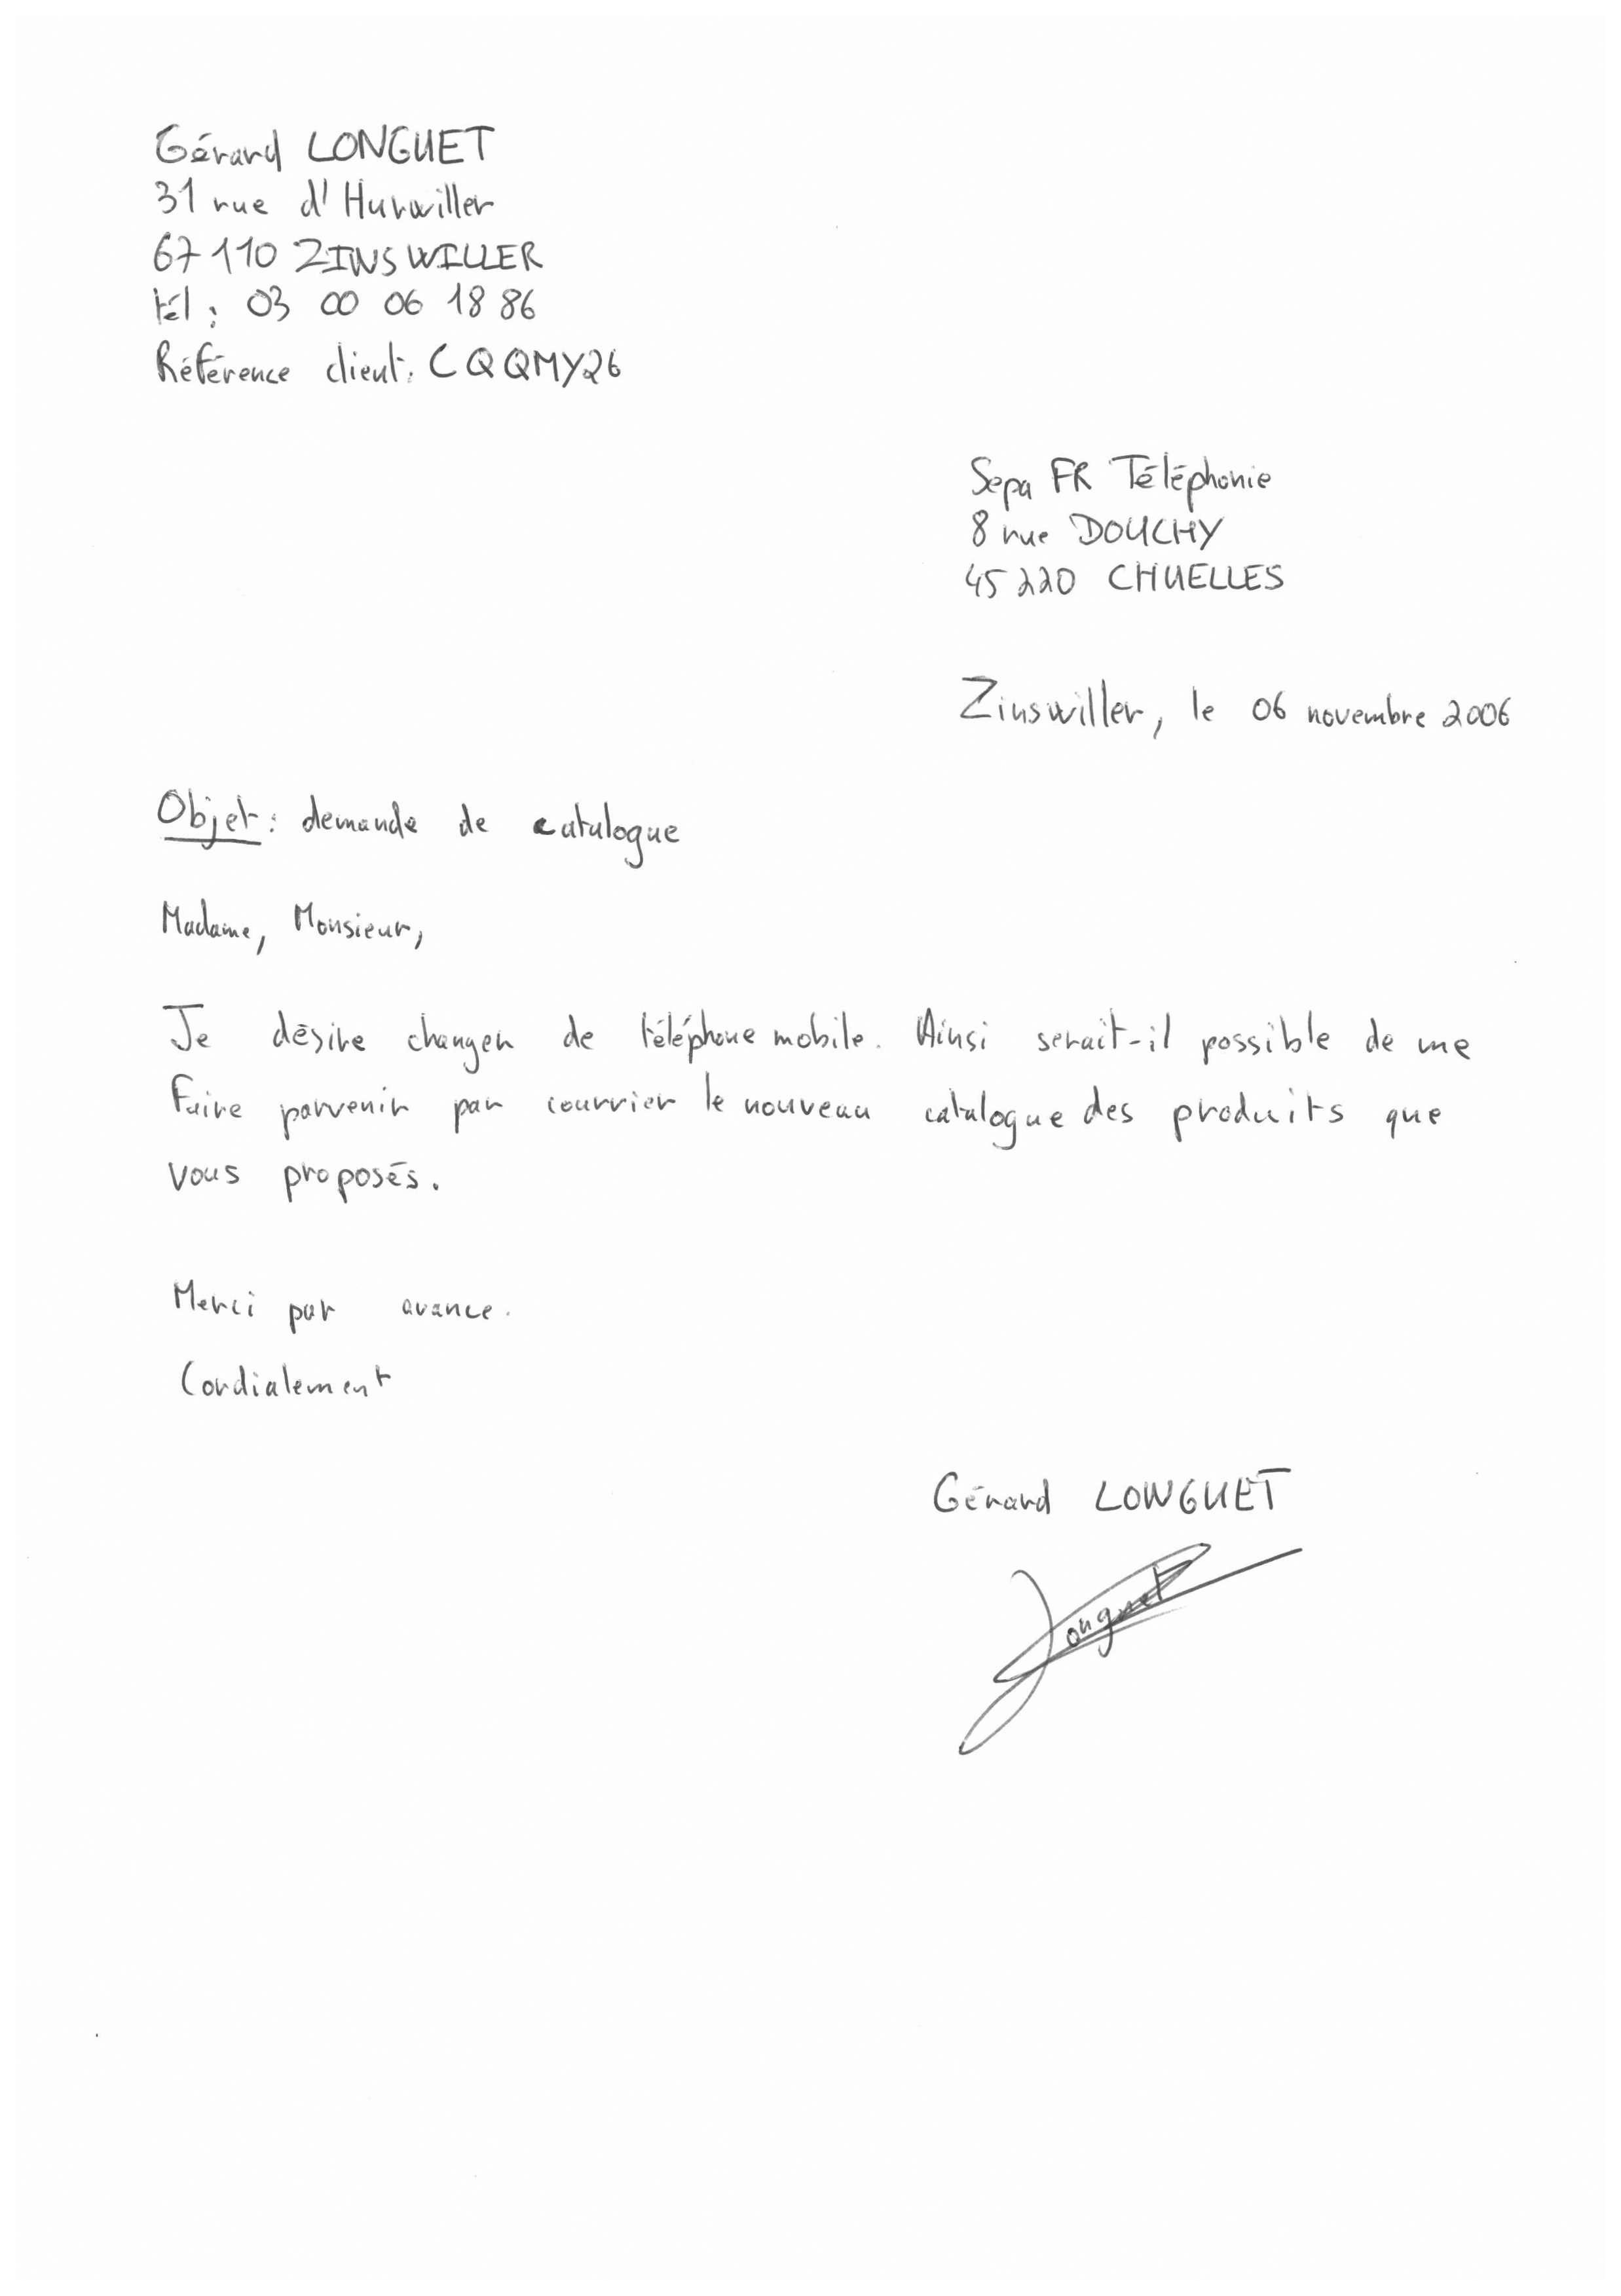 Gérard LONGUET
31 rue d'Hurwiller
67110 ZINSWILLER
tél : 03 00 06 18 86
Référence client : CQQMY26
Sepa FR Téléphonie
8 rue DOUCHY
45220 CHUELLES
Zinswiller, le 06 novembre 2006
Objet : demande de catalogue
Madame, Monsieur,
Je désire changer de téléphone mobile. Ainsi serait-il possible de me
faire parvenir par courrier le nouveau catalogue des produits que
vous proposés.
Merci par avance.
Cordialement
Gérard LONGUET
Longuet